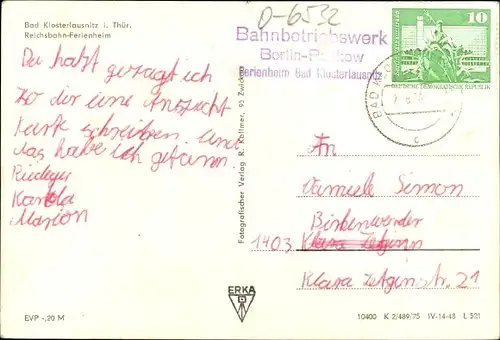 Bad Klosterlausnitz i. Thür.
Reichsbahn-Ferienheim
D-6532
Bahnbetriebswerk
Berlin-Pankow
Ferienheim Bad Klosterlausnitz
10
DEUTSCHE DEMOKRATISCHE REPUBLIK
BAD
c
Du hatst gesagt ich
so dir eine Ansicht
karte schreiben. und
das habe ich getann.
Rüdeger
Karola
Marion
Fotografischer Verlag R. Kallmer, 95 Zwickau
An
Daniele Simon
Birkenwerder
1403
Klara Zetginstr. 21
ERKA
EVP -,20 M
10400 K 2/489/75 IV-14-48 L 521